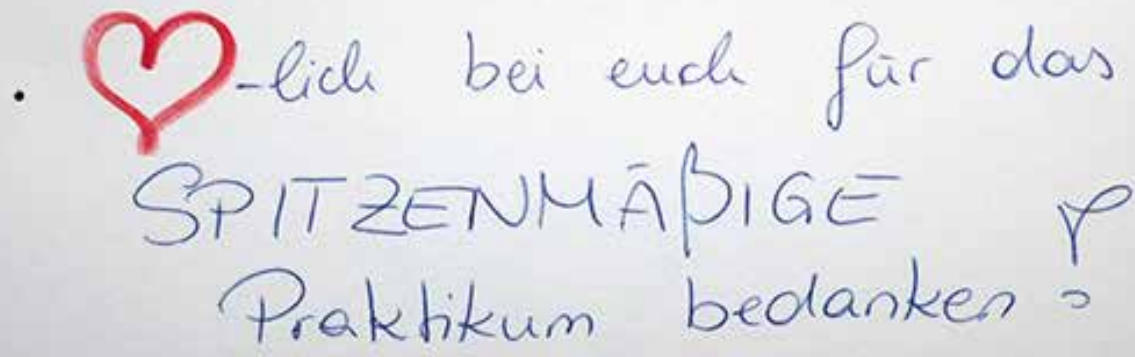 . ♥-lich bei euch für das
SPITZENMÄßIGE
Praktikum bedanken!